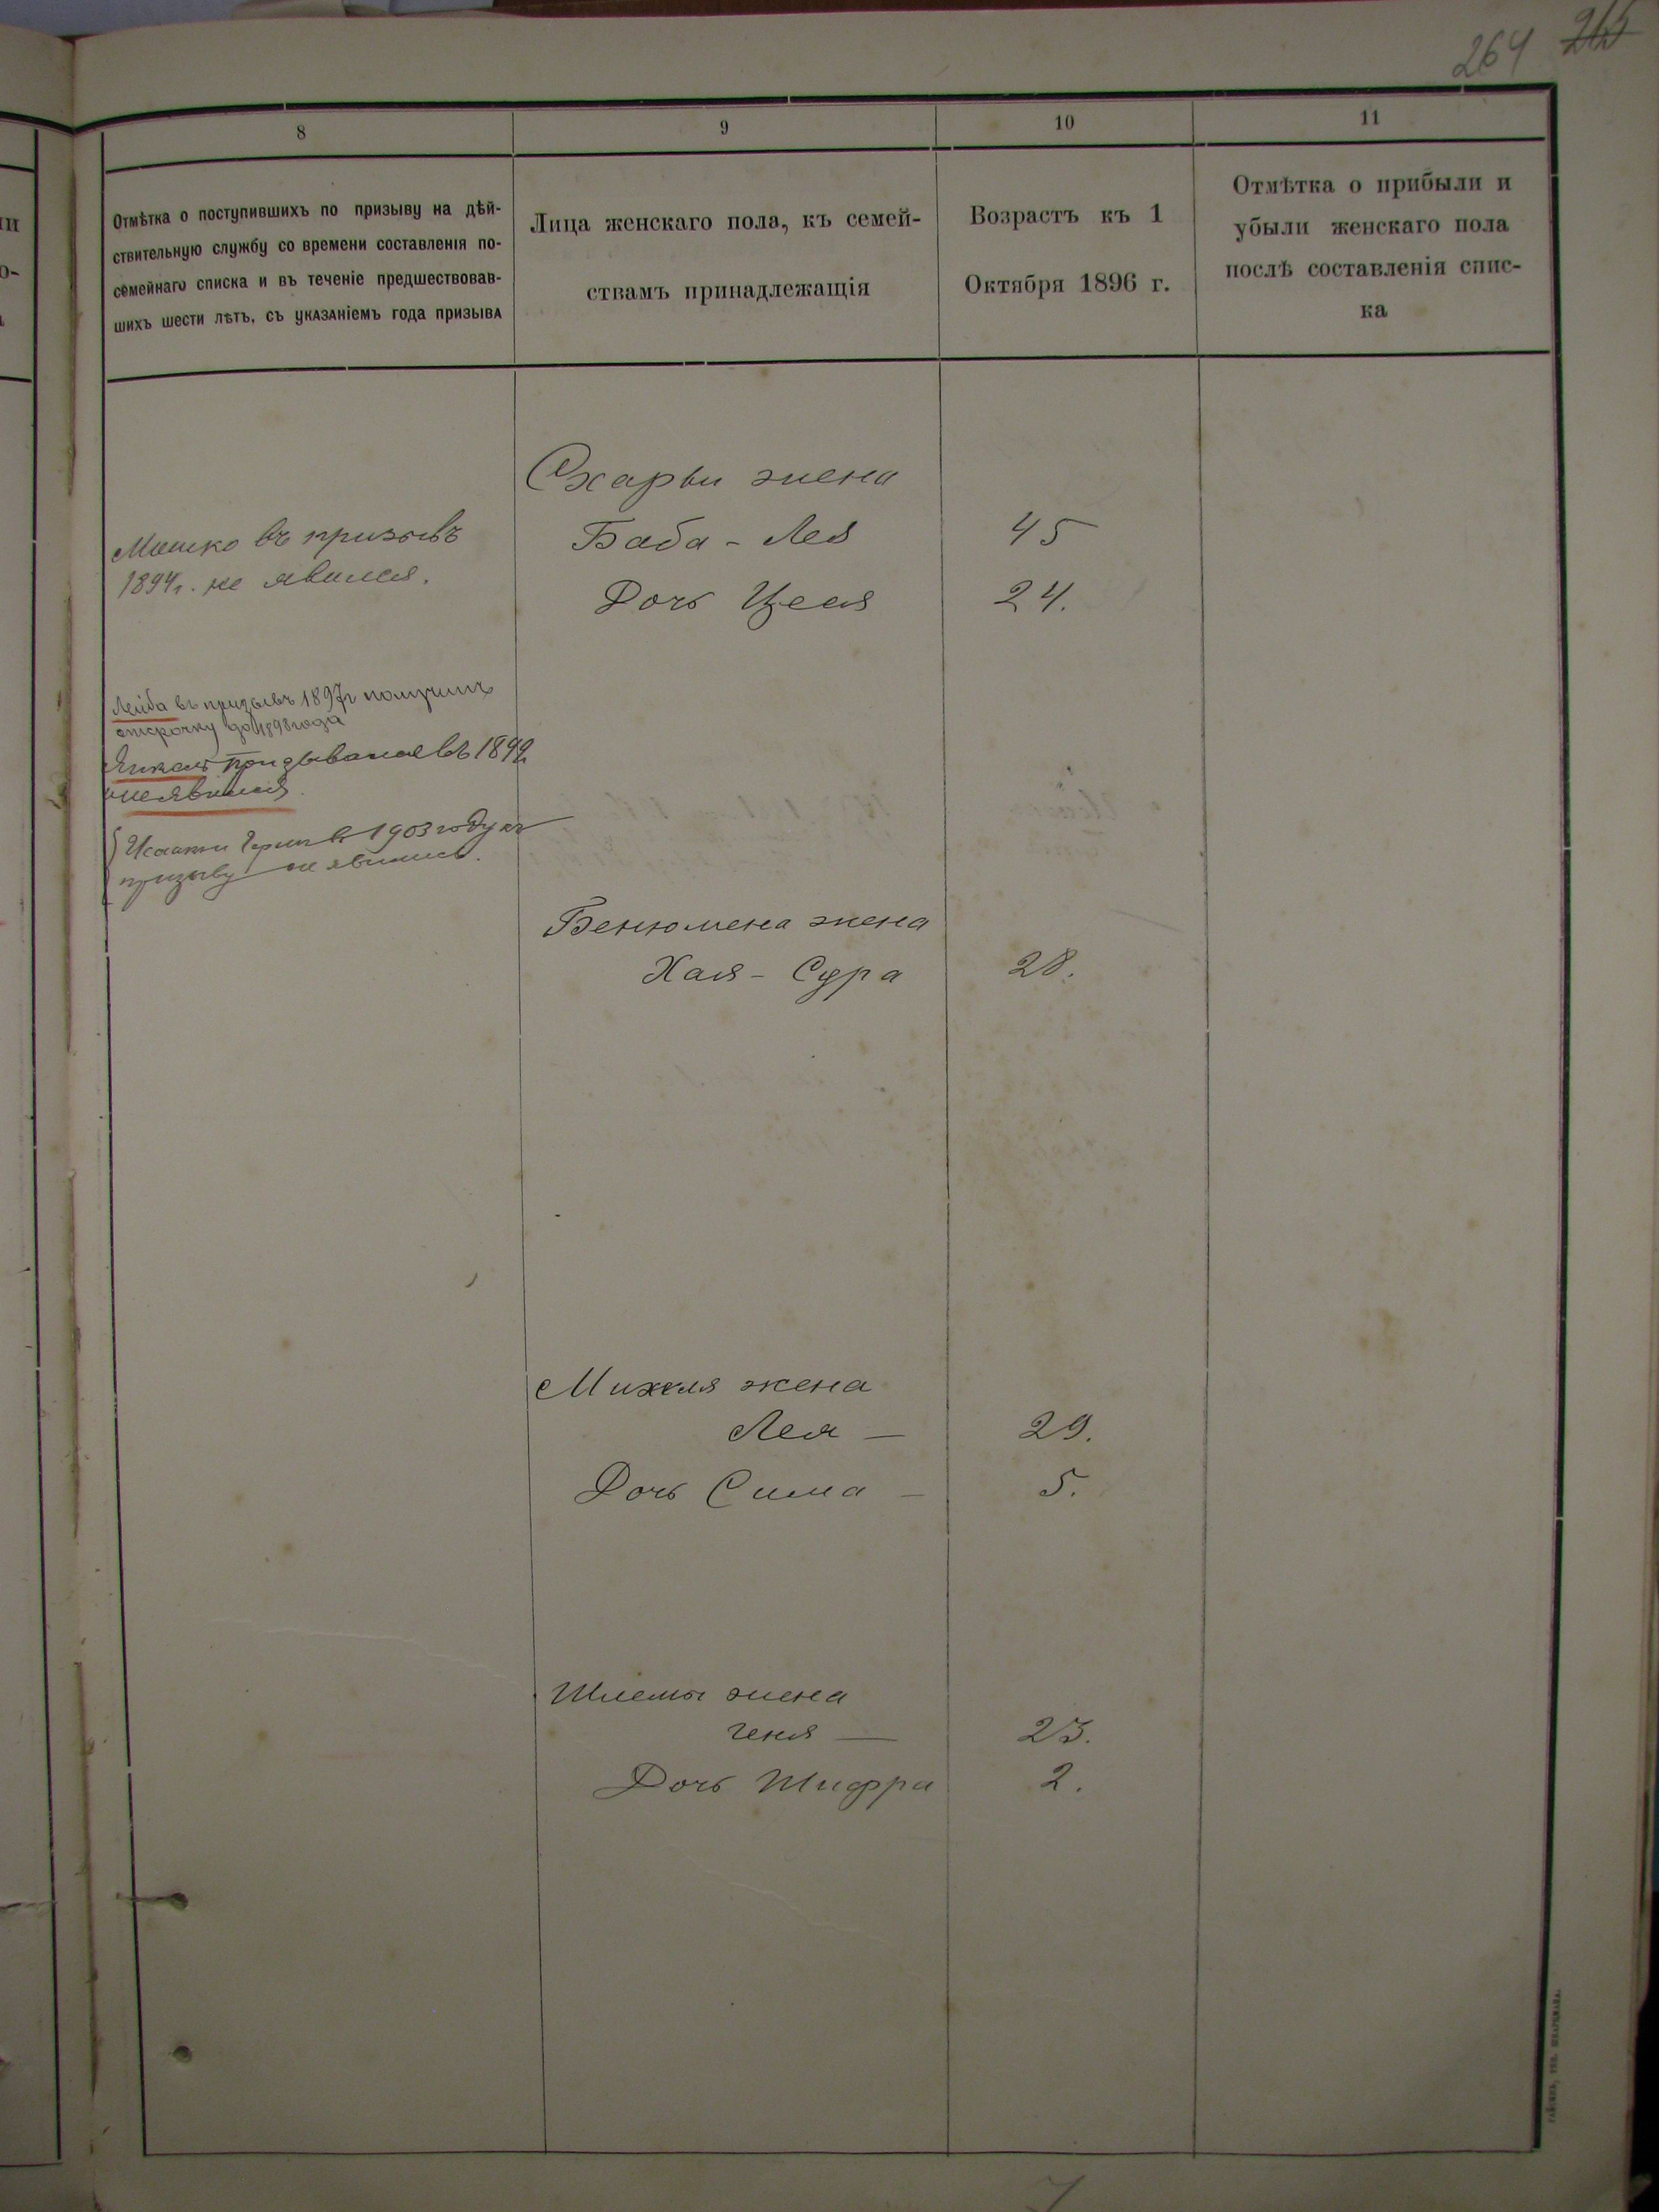 264 265
8 9 10 11
Отмѣтка о поступившихъ по призыву на дѣй-
ствительную службу со времени составленія по-
семейнаго списка и въ теченіе предшествовав-
шихъ шести лѣтъ, съ указаніемъ года призыва
Лица женскаго пола, къ семей-
ствамъ принадлежащія
Возрастъ къ 1
Октября 1896 г.
Отмѣтка о прибыли и
убыли женскаго пола
послѣ составленія спис-
ка
Мошко въ призывъ
1894г. не явился.
Лейба въ призывъ 1897г получилъ
отсрочку до 1898 года
призывался въ 1899
неявился
въ 1903 году къ
призыву не явились.
жена
Баба - Лея 45
Дочь 24.
Бенюмена жена
Хая - Сура 28.
Михеля жена
Лея — 29.
Дочь Сима — 5.
Шлемы жена
Геня — 23.
Дочь Шифра 2.